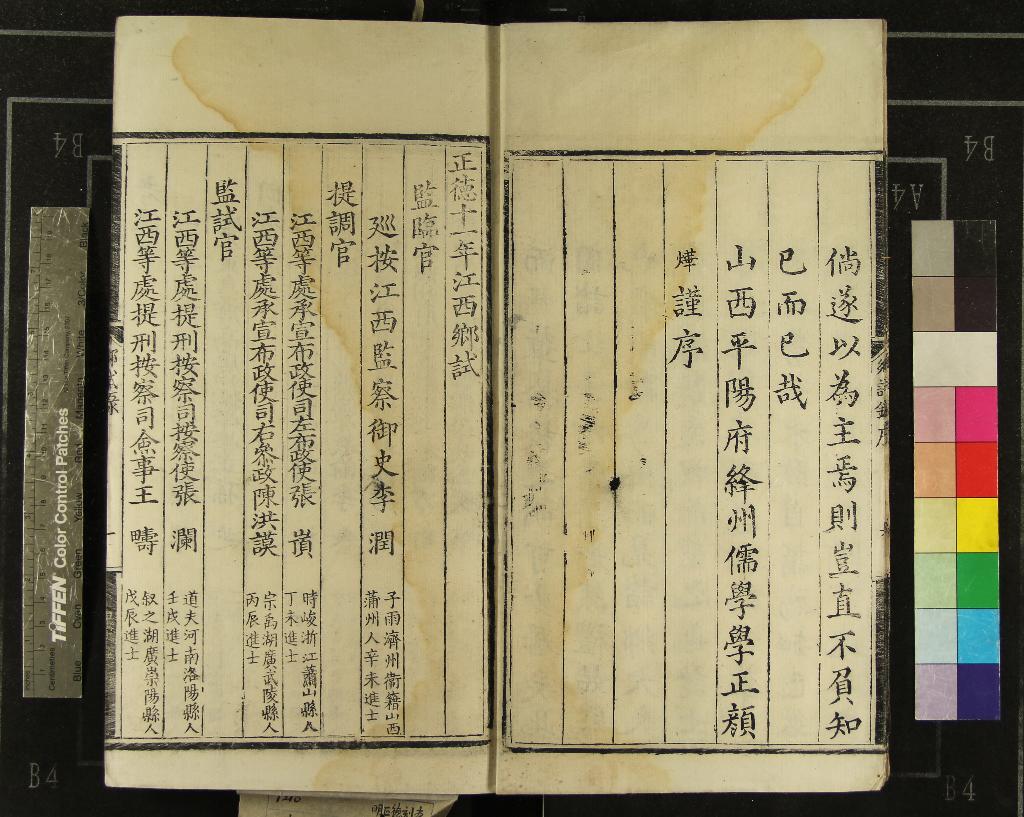 倘遂以為主焉則豈直不負知
已而已哉
山西平陽府絳州儒學學正顏
燁謹序
鄉試錄序
正德十一年江西鄉試
監臨官
廵按江西監察御史李 潤 子雨濟州衛籍山西
蒲州人辛未進士
提調官
江西等處承宣布政使司左布政使張 嵿 時峻浙江蕭山縣人
丁未進士
江西等處承宣布政使司右參政陳洪謨 宗禹湖廣武陵縣人
丙辰進士
監試官
江西等處提刑按察司按察使張 瀾 道夫河南洛陽縣人
壬戌進士
江西等處提刑按察司僉事王 疇 叙之湖廣崇陽縣人
戊辰進士
鄉試錄
一
B4
B4
A4
B4
B4
TIFFEN Color Control Patches
Blue
Cyan
Green
Yellow
Red
Magenta
White
3/Color
Black
Centimetres